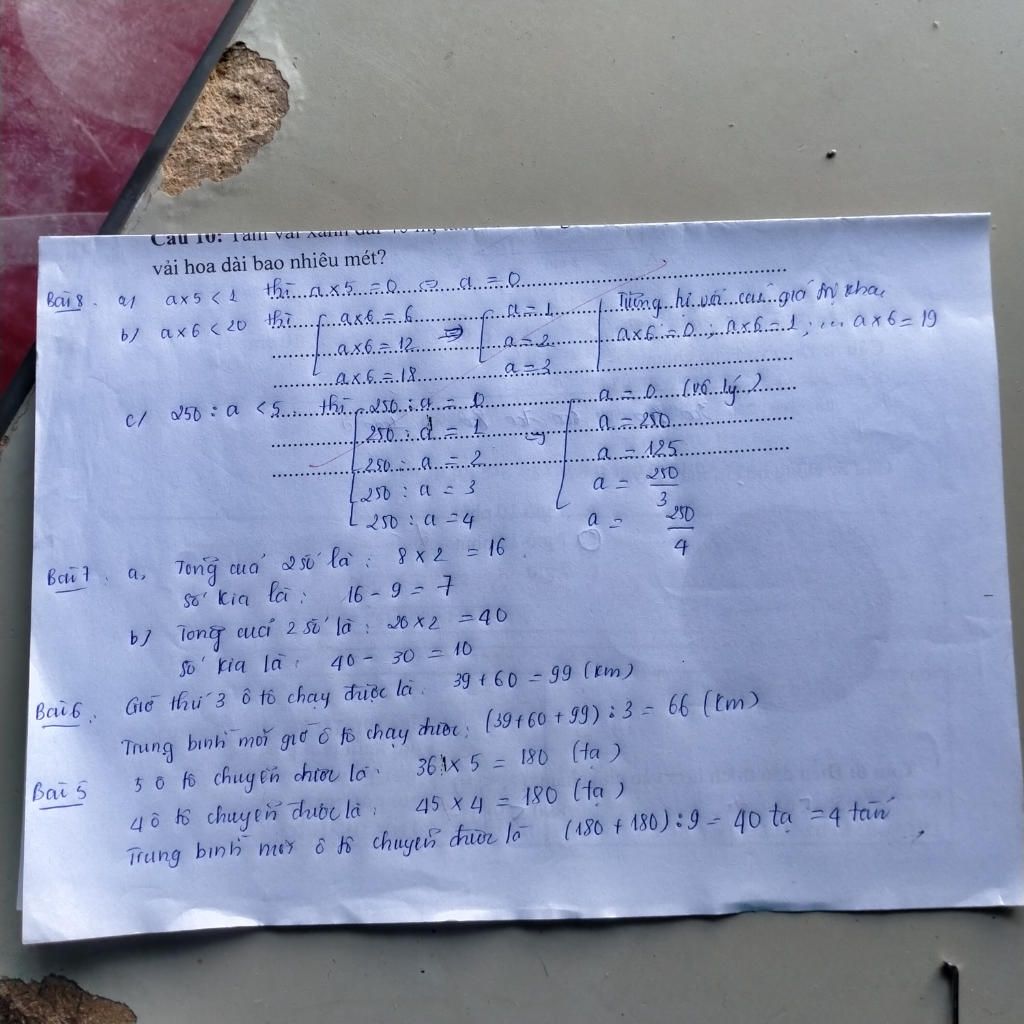 Câu 10: Tấm vải xanh dài
vải hoa dài bao nhiêu mét?
Bài 8. a) a x 5 < 1 thì a x 5 = 0 <=> a = 0
b) a x 6 < 20 thì a x 6 = 6 => a = 1 Tương tự với các giá trị khác
a x 6 = 12 a = 2 a x 6 = 0 ; a x 6 = 1 ; ... a x 6 = 19
a x 6 = 18 a = 3
c) 250 : a < 5 thì 250 : a = 0 a = 0 (vô lý)
250 : a = 1 a = 250
250 : a = 2 a = 125
250 : a = 3 a = 250/3
250 : a = 4 a = 250/4
Bài 7. a, Tổng của 2 số là : 8 x 2 = 16
số kia là : 16 - 9 = 7
b) Tổng của 2 số là : 20 x 2 = 40
số kia là : 40 - 30 = 10
Bài 6. Giờ thứ 3 ô tô chạy được là 39 + 60 = 99 (km)
Trung bình mỗi giờ ô tô chạy được : (39 + 60 + 99) : 3 = 66 (km)
Bài 5 5 ô tô chuyển được là 36 x 5 = 180 (tạ)
4 ô tô chuyển được là : 45 x 4 = 180 (tạ)
Trung bình mỗi ô tô chuyển được là (180 + 180) : 9 = 40 tạ = 4 tấn